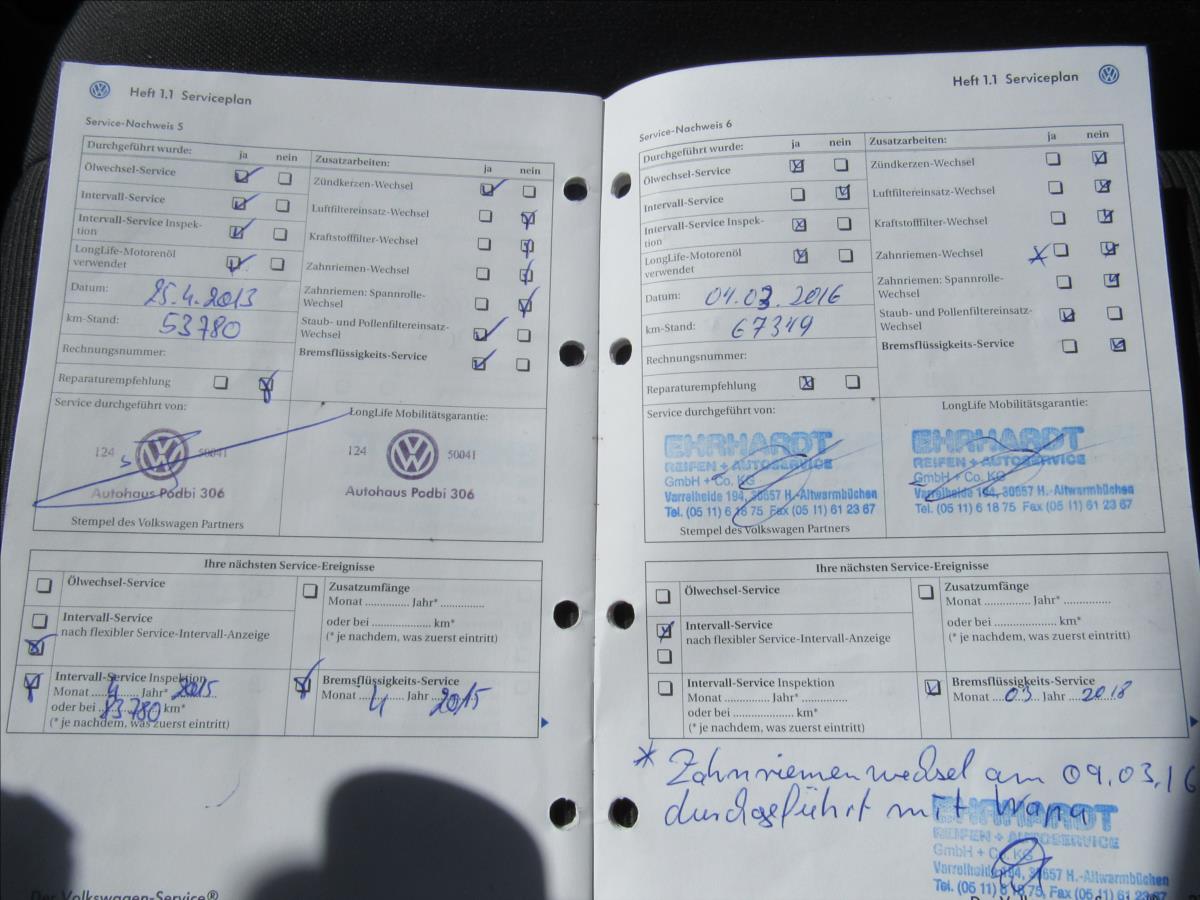 Heft 1.1 Serviceplan
Service-Nachweis 5
Durchgeführt wurde: ja nein
Ölwechsel-Service
Intervall-Service
Intervall-Service Inspek-
tion
LongLife-Motorenöl
verwendet
Datum: 25.4.2013
km-Stand: 53780
Rechnungsnummer:
Reparaturempfehlung
Zusatzarbeiten: ja nein
Zündkerzen-Wechsel
Luftfiltereinsatz-Wechsel
Kraftstofffilter-Wechsel
Zahnriemen-Wechsel
Zahnriemen: Spannrolle-
Wechsel
Staub- und Pollenfiltereinsatz-
Wechsel
Bremsflüssigkeits-Service
Service durchgeführt von:
124 50041
Autohaus Podbi 306
Stempel des Volkswagen Partners
LongLife Mobilitätsgarantie:
124 50041
Autohaus Podbi 306
Ihre nächsten Service-Ereignisse
Ölwechsel-Service
Intervall-Service
nach flexibler Service-Intervall-Anzeige
Intervall-Service Inspektion
Monat 4 Jahr* 2015
oder bei 83780 km*
(* je nachdem, was zuerst eintritt)
Zusatzumfänge
Monat ............... Jahr* ...............
oder bei ..................... km*
(* je nachdem, was zuerst eintritt)
Bremsflüssigkeits-Service
Monat 4 Jahr 2015
Der Volkswagen-Service®
Heft 1.1 Serviceplan
Service-Nachweis 6
Durchgeführt wurde: ja nein
Ölwechsel-Service
Intervall-Service
Intervall-Service Inspek-
tion
LongLife-Motorenöl
verwendet
Datum: 04.03.2016
km-Stand: 67349
Rechnungsnummer:
Reparaturempfehlung
Zusatzarbeiten: ja nein
Zündkerzen-Wechsel
Luftfiltereinsatz-Wechsel
Kraftstofffilter-Wechsel
Zahnriemen-Wechsel *
Zahnriemen: Spannrolle-
Wechsel
Staub- und Pollenfiltereinsatz-
Wechsel
Bremsflüssigkeits-Service
Service durchgeführt von:
EHRHARDT
REIFEN + AUTOSERVICE
GmbH + Co. KG
Varrelheide 194, 30657 H.-Altwarmbüchen
Tel. (05 11) 6 18 75 Fax (05 11) 61 23 67
Stempel des Volkswagen Partners
LongLife Mobilitätsgarantie:
EHRHARDT
REIFEN + AUTOSERVICE
GmbH + Co. KG
Varrelheide 194, 30657 H.-Altwarmbüchen
Tel. (05 11) 6 18 75 Fax (05 11) 61 23 67
Ihre nächsten Service-Ereignisse
Ölwechsel-Service
Intervall-Service
nach flexibler Service-Intervall-Anzeige
Intervall-Service Inspektion
Monat ............... Jahr* ...............
oder bei ..................... km*
(* je nachdem, was zuerst eintritt)
Zusatzumfänge
Monat ............... Jahr* ...............
oder bei ..................... km*
(* je nachdem, was zuerst eintritt)
Bremsflüssigkeits-Service
Monat 03 Jahr 2018
* Zahnriemenwechsel am 09.03.16
durchgeführt mit Wapu
EHRHARDT
REIFEN + AUTOSERVICE
GmbH + Co. KG
Varrelheide 194, 30657 H.-Altwarmbüchen
Tel. (05 11) 6 18 75 Fax (05 11) 61 23 67